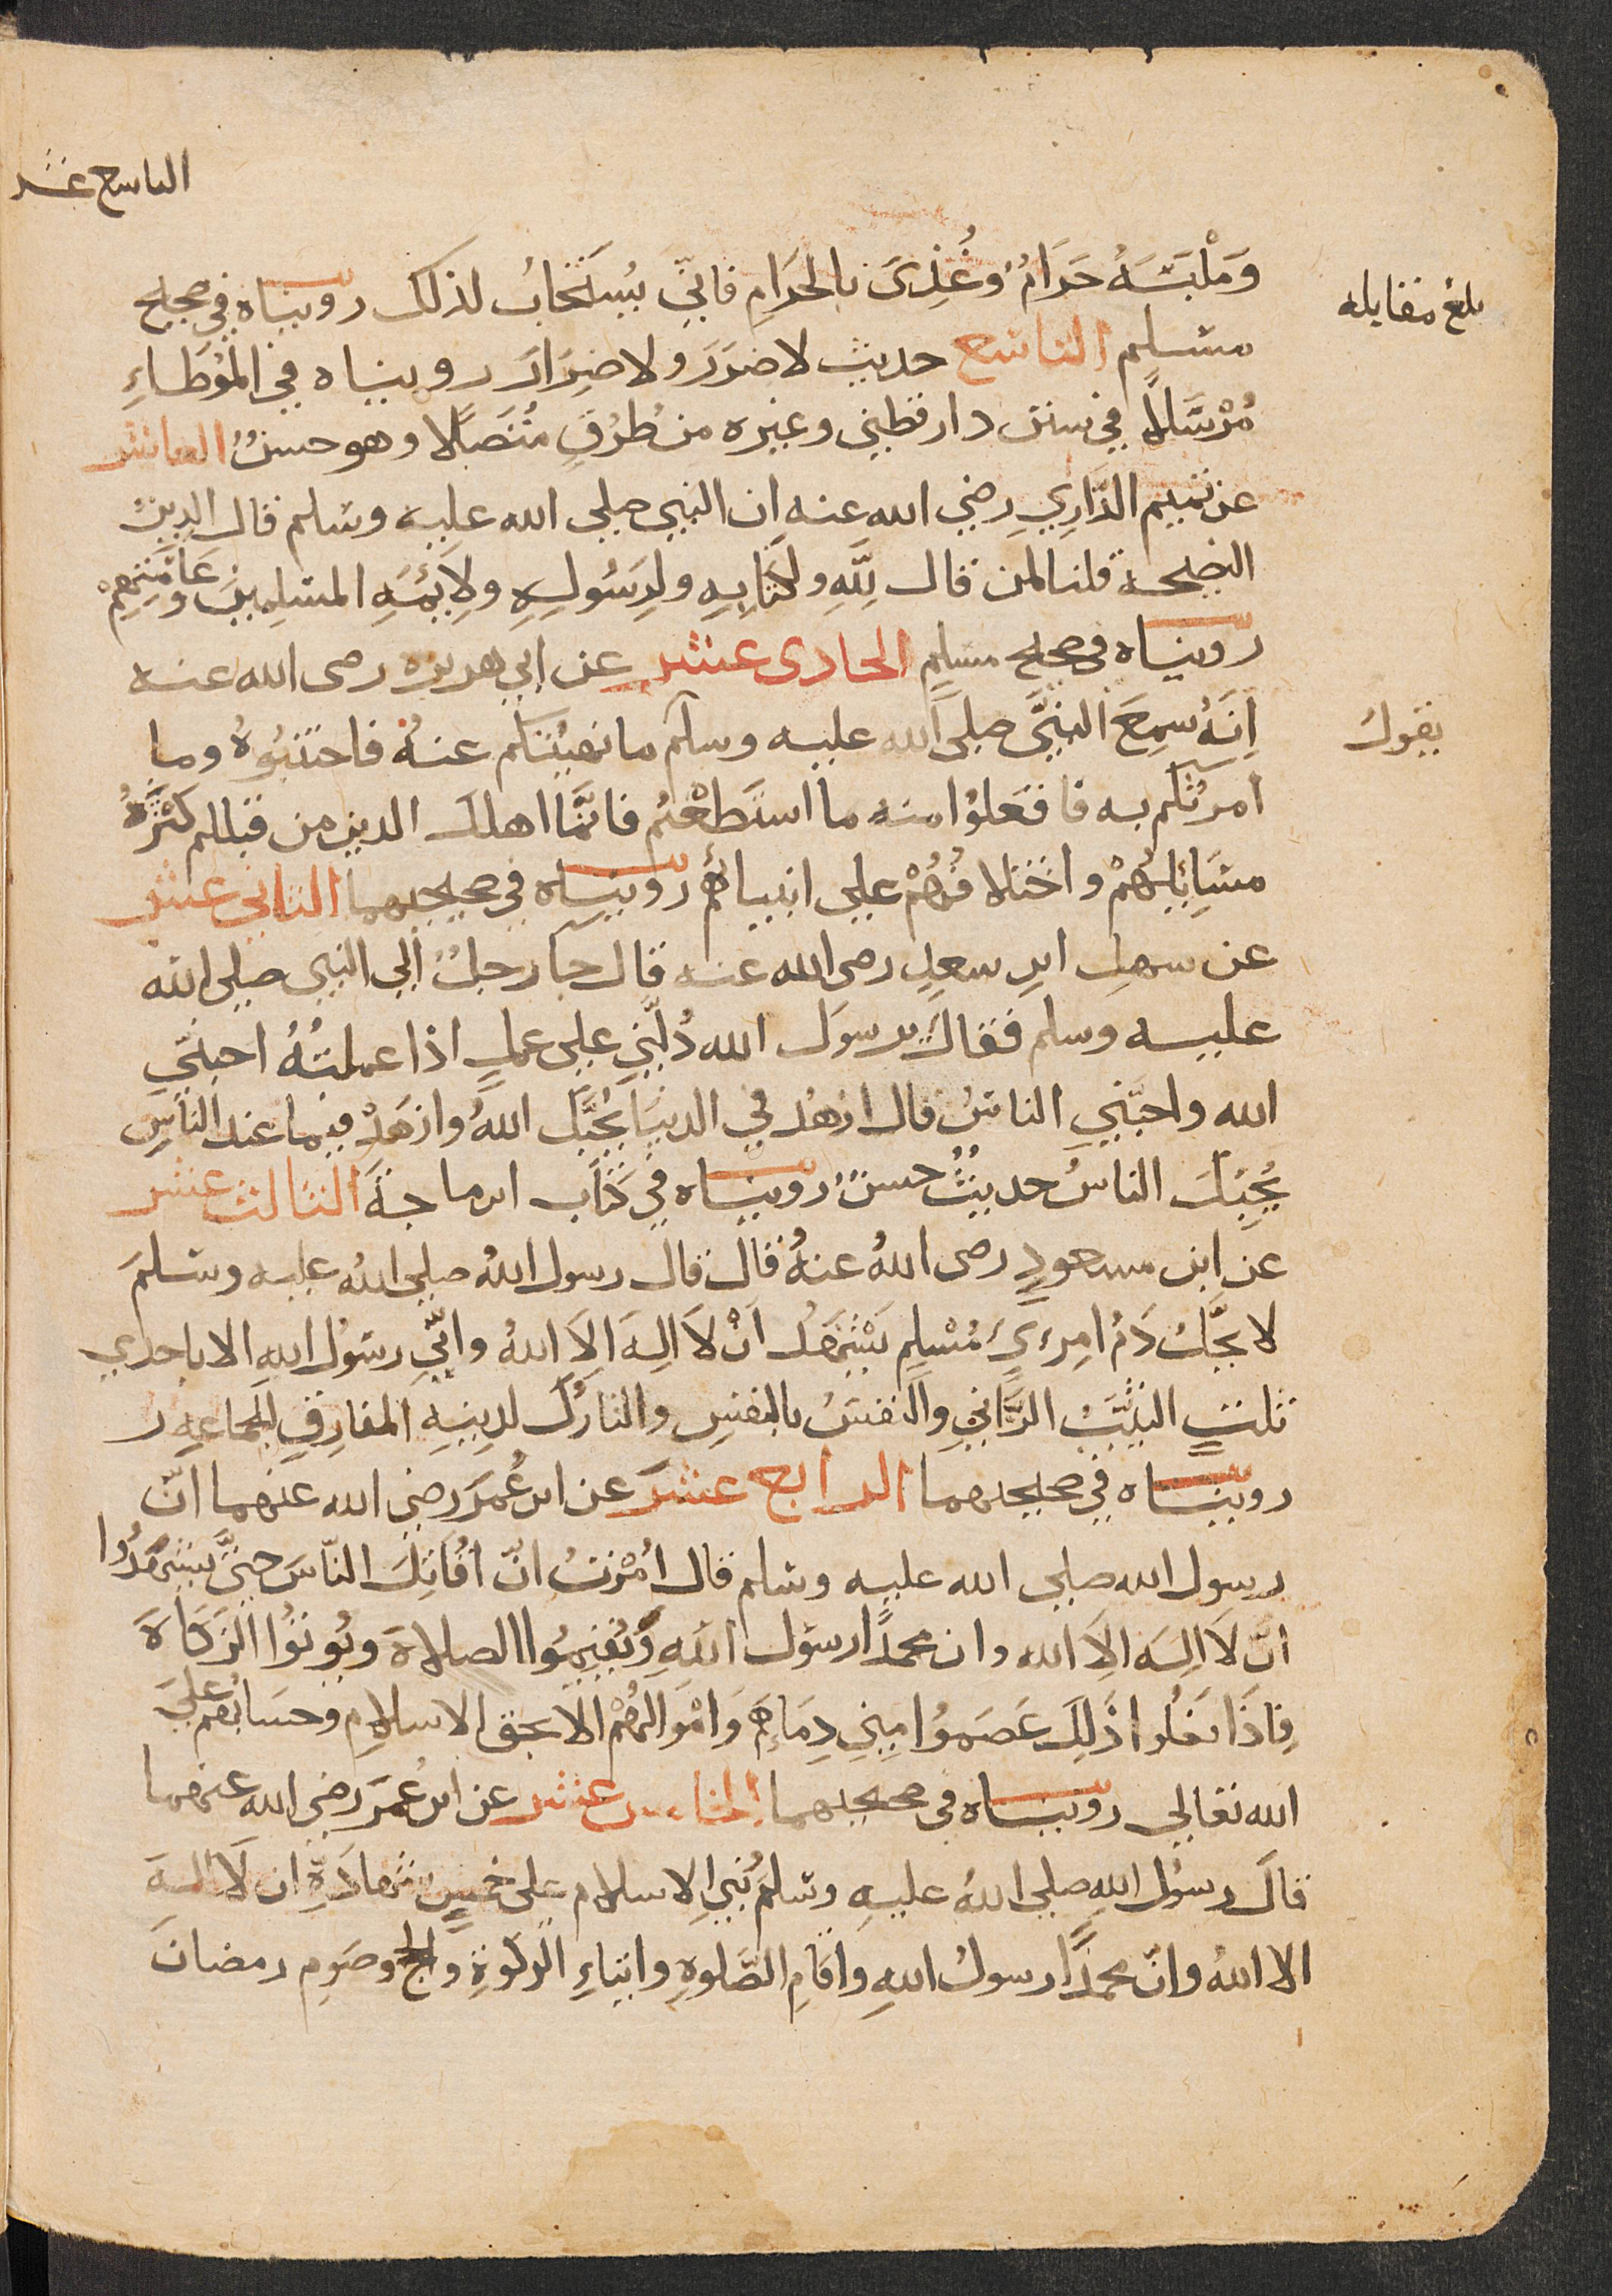 التاسع عشر
وَمَلْبَسَهُ حَرَامٌ وغُذِىَ بالحَرَامِ فانّي يُستَجابُ لذلك رويناه في صحيح
بلغ مقابله
مسلمٍ التاسع حديث لا ضرَرَ ولا ضِرَارَ رويناه في المُوَطاءِ
مُرْسَلاً في سنن دارقطني وغيره من طُرُقٍ مُتَصِلًا وهو حسنٌ العاشر
عن تميم الدَّارِيِ رضي الله عنه ان النبي صلى الله عليه وسلم قال الدينُ
النصحة قلنا لمن قال لِلَّهِ ولكتَابِهِ ولِرَسُولِهِ ولِأَئِمَّهِ المسلِمِينَ وعَامَّتِهِمْ
رويناه في صحيح مسلمٍ الحادى عشر عن ابي هريره رضى الله عنه
اِنَهُ سمِعَ النبيَّ صلى الله عليه وسلم ما نهيتُكم عنهُ فاجتنبُوهُ وما
يقول
امرتُكم به فافعَلوُا منه ما استَطعْتُم فانَّمَا اهلك الدين من قبلكم كثْرَةُ
مسَايِلِهُمْ واختلافُهُمْ على انبيائهم رويناه في صحيحيهما الثانى عشر
عن سهلِ ابن سعدٍ رضى الله عنه قال جا رجلٌ الي النبي صلى الله
عليه وسلم فقال يرسوَل الله دُلَّنِي على عملٍ اذا عملتُهُ احبَّنِي
الله واحبَّنِي الناسُ قال ازهَدْ في الدنيَا يُحُبَّك اللهُ وازهَدْ فيما عند الناسِ
يُحِبَّكَ الناسُ حديثٌ حسنٌ رويناه في كتَاب ابن ماجةَ الثالث عشر
عن ابن مسعودٍ رضى اللهُ عنهُ قال قال رسول اللهُ صلى اللهُ عليه وسلمَ
لا يحَّلُ دَمُ امِرءيٍ مُسْلِمٍ يَشْهَدُ اَنْ لاَ اِلهَ اِلاَ اللهُ وانّي رسَوُل اللهِ الا باحدي
ثلثٍ الثيّبُ الزَّانِي والنفسُ بالنفسِ والتاركُ لدِينِهِ المفارِقِ للجماعةِ ر
رويناه في صحيحيهما الرابع عشرَ عن ابن عُمَرَ رضي الله عنهما انّ
رسول الله صلى الله عليه وسلم قال اُمْرِتُ انّ اُقاتِلَ النّاسَ حتيَّ يشهَدُوا
انّ لاَ اِلهَ الاَ الله وان محمدًا رسوُل اللهِ وَيُقيمُوا الصلاةَ ويُوتُوُا الزَكَاةَ
فِاذَا فعَلُوا ذَلِكَ عَصَموُا مِنِي دِمَاءهم وَامْوَالَهُمْ الا بحق الاسلامِ وحسَابُهُم علي
الله تعالي رويناه في صحيحيهما الخامس عشر عن ابن عُمَرَ رضي الله عنهما
قالَ رسوُل اللهِ صلى اللهُ عليهِ وسلمَ بُنِي الاسلام على خمسٍ شهادَةِ ان لاَ اِلهَ
الا اللهُ وانّ محمدًا رسولُ اللهِ واقَامِ الصَّلوةِ وايتاءِ الزكوةِ والحج وصَوم رمضانَ